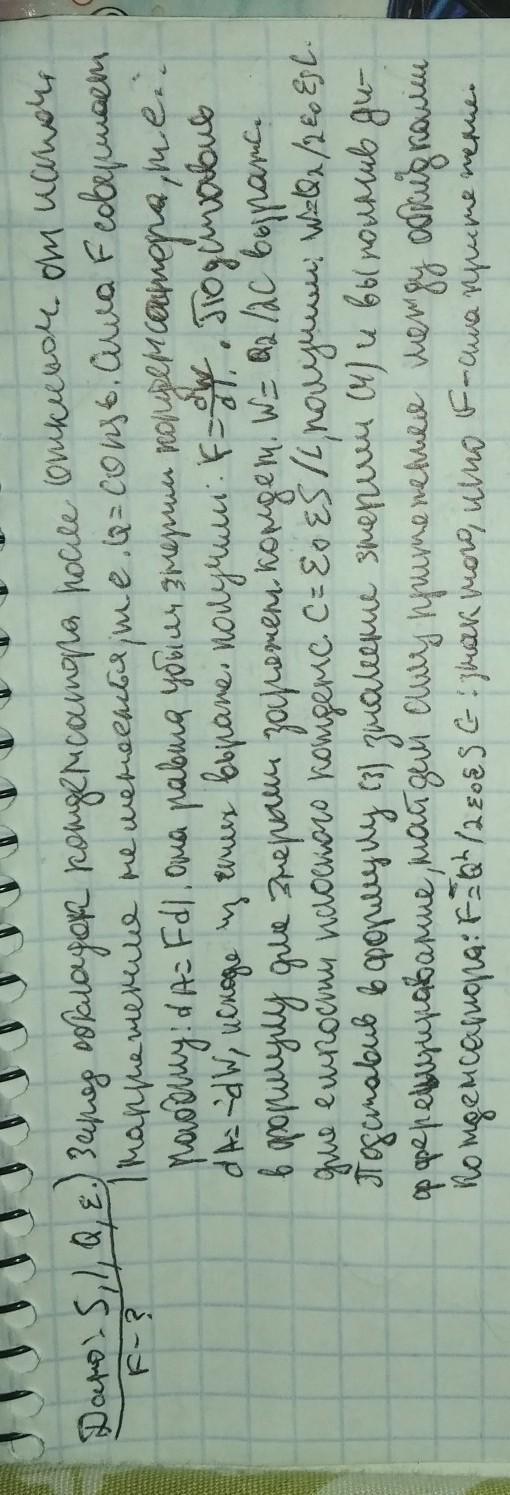 Дано: S, l, Q, ε.
F - ?
Заряд обкладок конденсатора после отключ. от источ.
напряжения не меняется, т.е. Q = const. Сила F совершает
работу: dA = Fdl. она равна убыли энергии конденсатора, т.е.:
dA = -dW, исходя из этих выраже. получим: F = . Подставив
в формулу для энергии заряжен. конденс. W = Q2/2C выраж.
для емкости плоского конденс. C = ε0 εS/L, получим: W = Q2/2ε0 εSL.
Подставив в формулу (3) значение энергии (4) и выполнив ди-
фференцирование, найдем силу притяжения между обкладками
конденсатора: F = Q²/2ε0εS (- : знак того, что F - сила притяжения.